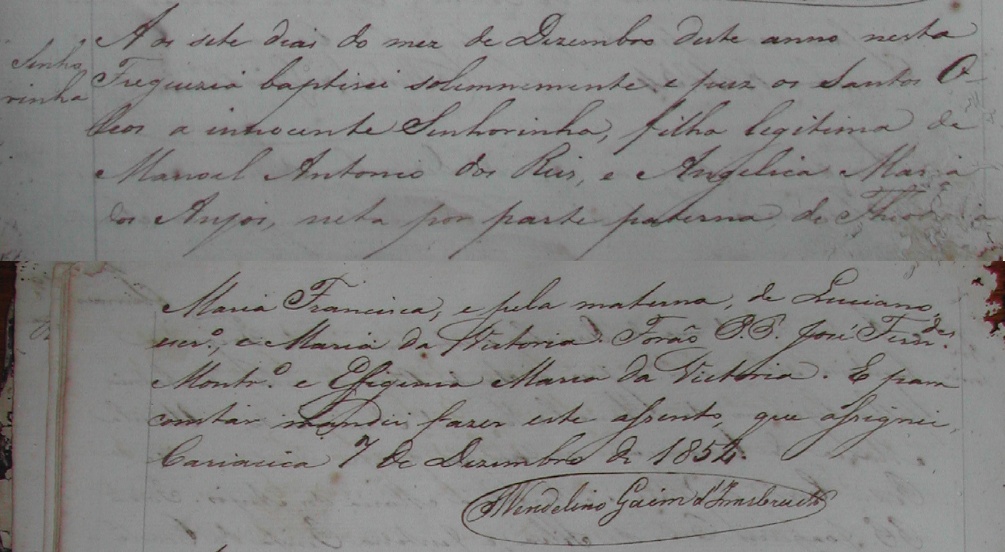 Senho
rinha
Aos sete dias do mez de Dezembro deste anno nesta
Freguezia baptisei solemnemente e puz os Santos O-
leos a innocente Senhorinha, filha legitima de
Manoel Antonio dos Reis, e Angelica Maria
dos Anjos, neta por parte paterna de
Maria Francisca, e pela materna, de Luciano
e Maria da Victoria. Forão P.P. José Ferr.
Montr.º e Efigenia Maria da Victoria. E para
constar mandei fazer este assento, que assignei,
Cariacica 7 de Dezembro de 1854.
Wendelino Gaim d'Innsbruck